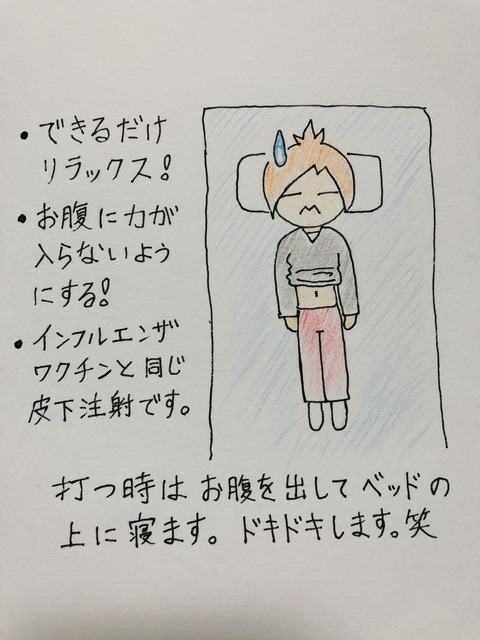 •できるだけ
リラックス!
•お腹に力が
入らないよう
にする!
•インフルエンザ
ワクチンと同じ
皮下注射です。
打つ時はお腹を出してベッドの
上に寝ます。ドキドキします。笑